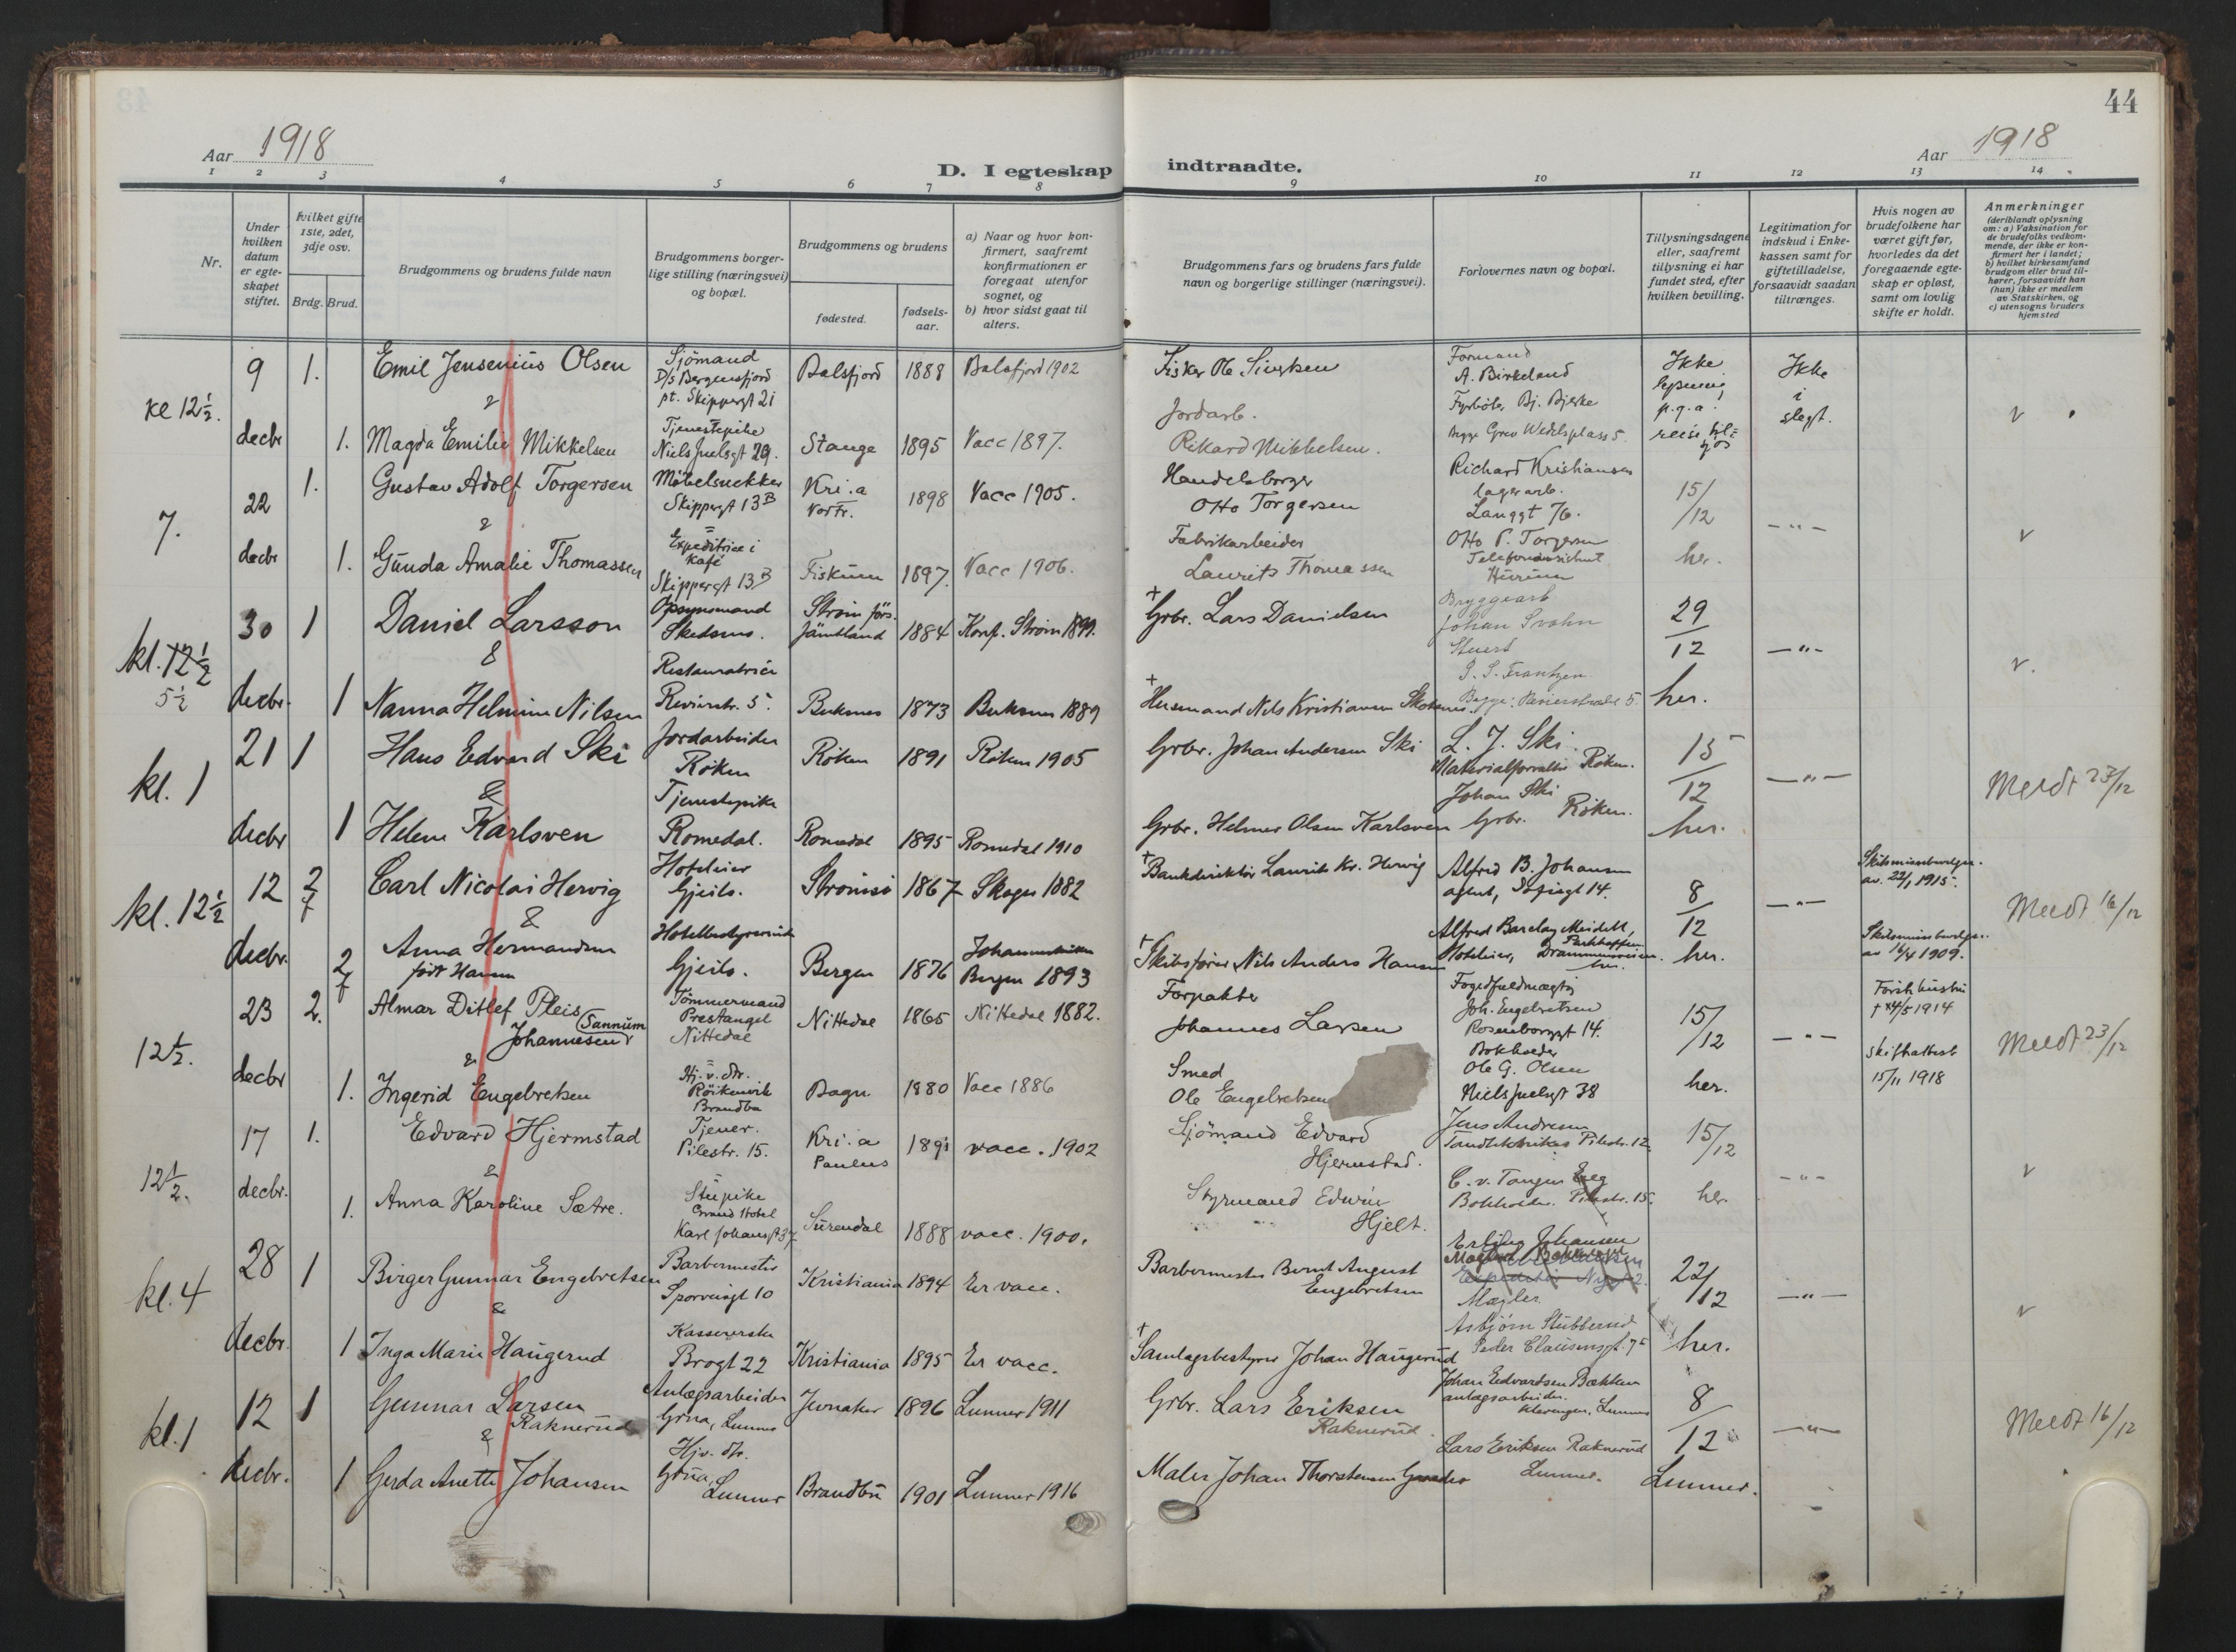 44
Aar 1918
D. I egteskap indtraadte.
Aar 1918
1 2 3 4 5 6 7 8 9 10 11 12 13 14
Nr.
Under hvilken datum er egteskapet stiftet.
hvilket gifte 1ste, 2det, 3dje osv.
Brdg. Brud.
Brudgommens og brudens fulde navn
Brudgommens borgerlige stilling (næringsvei) og bopæl.
Brudgommens og brudens
fødested.
fødselsaar.
a) Naar og hvor konfirmert, saafremt konfirmationen er foregaat utenfor sognet, og
b) hvor sidst gaat til alters.
Brudgommens fars og brudens fars fulde navn og borgerlige stillinger (næringsvei).
Forlovernes navn og bopæl.
Tillysningsdagene eller, saafremt tillysning ei har fundet sted, efter hvilken bevilling.
Legitimation for indskud i Enkekassen samt for giftetilladelse, forsaavidt saadan tiltrænges.
Hvis nogen av brudefolkene har været gift før, hvorledes da det foregaaende egteskap er opløst, samt om lovlig skifte er holdt.
Anmerkninger
(deriblandt oplysning om: a) Vaksination for de brudefolks vedkommende, der ikke er konfirmert her i landet; b) hvilket kirkesamfund brudgom eller brud tilhører, forsaavidt han (hun) ikke er medlem av Statskirken, og c) utensogns bruders hjemsted
kl 12½.
9 decbr
1. Emil Jensenius Olsen
Sjömand D/S Bergensfjord pt. Skippergt 21
Balsfjord 1888 Balsfjord 1902
Fisker Ole
Formand A. Birkeland
Fyrböter Bj. Bjerke
Begge Grev Wedelsplass 5.
Ikke lysning p.g.a. reise til
Ikke i slegt.
&
1. Magda Emilie Mikkelsen
Tjenestepike Niels Juelsgt 29.
Stange 1895 Vacc 1897.
Jordarb. Rikard Mikkelsen.
7.
22 decbr
1. Gustav Adolf Torgersen
Möbelsnekker Skippergt 13B
Kri.a 1898 Vacc 1905.
Handelsborger Otto Torgersen
Richard Kristiansen lagerarb. Langgt 76.
Otto P. Torgersen
15/12 her.
— " —
&
1. Gunda Amalie Thomassen
Expeditrice i kafé Skippergt 13B
Fiskum 1897. Vacc 1906.
Fabrikarbeider Laurits Thomassen
kl. 12½
5½
30 decbr.
1 Daniel Larsson
Opsynsmand Skedsmo.
Ström Jämtland 1884 Konf. Ström 1899.
† Grbr. Lars Danielsen
Bryggearb Johan Svahn
Stuert P. S. Frantzen
Begge: Revierstræde 5.
29/12 her.
— " —
&
1 Nanna Helmine Nilsen
Restauratrice Revierstr. 5.
Buksnes 1873 Buksnes 1889
† Husmand Nils Kristiansen
kl. 1
21 decbr
1 Hans Edvard Ski
Jordarbeider Röken
Röken 1891 Röken 1905
Grbr. Johan Andersen Ski
L. J. Ski Materialforvalter Röken.
Johan Ski Grbr. Röken.
15/12 her.
— " —
Meldt 23/12
&
1 Helene Karlsven
Tjenestepike Romedal.
Romedal 1895 Romedal 1910
Grbr. Helmer Olsen Karlsven
kl. 12½
12 decbr.
2 f Carl Nicolai Hervig
Hotelier Gjeilo.
Strömsö 1867 Skoger 1882
† Bankdirektör Laurits Kr. Hervig
Alfred B. Johansen agent, Sofiegt 14.
Alfred Barclay Meidell, Hotelier, Drammensveien.
8/12 her.
— " —
Skilsmissebevilgn. av 22/1 1915.
Meldt 16/12
&
2 f Anna Hermandsen född Hansen
Hotelbestyrerinde Gjeilo.
Bergen 1876 Johanneskirken Bergen 1893
† Skibsförer Nils Anders Hansen
Skilsmissebevilgn. av 16/4 1909.
12½.
23 decbr
2. Almar Ditlef Pleis Johannesen (Sannum)
Tömmermand Prestangel Nittedal
Nittedal 1865 Nittedal 1882.
Forpakter Johannes Larsen
Fogedfuldmægtig Joh. Engebretsen Rosenborggt 14.
Bokholder Ole G. Olsen Niels Juelsgt 38
15/12 her.
— " —
Første hustru † 24/5 1914
skifteattest 15/11 1918
Meldt 23/12
&
1. Ingerid Engebretsen
Hj. v. dtr. Röikenvik Brandbu
Bagn 1880 Vacc 1886
Smed Ole Engebretsen
12½.
17 decbr.
1. Edvard Hjermstad
Tjener. Pilestr. 15.
Kri.a Paulus 1891 vacc. 1902
Sjömand Edvard Hjermstad.
Jens Andresen Tandtekniker Pilestr. 12
C. v. Tangen Bokholder. Pilestr. 15.
15/12 her.
— " —
&
1. Anna Karoline Sætre.
Stuepike Grand Hotel Karl Johansgt 37
Surendal 1888 vacc. 1900.
Styrmand Edwin Hjelt.
kl. 4
28 decbr.
1 Birger Gunnar Engebretsen
Barbermester Sporveisgt 10
Kristiania 1894 Er vacc.
Barbermester Bernt August Engebretsen
Erling Johansen
Mægler Asbjörn Stubberud Peder Clausensgt. 7
22/12 her.
— " —
&
1 Inga Marie Haugerud
Kassererske Brogt 22
Kristiania 1895 Er vacc.
† Samlagsbestyrer Johan Haugerud
kl. 1
12 decbr.
1 Gunnar Larsen Raknerud
Anlægsarbeider Grua, Lunner
Jevnaker 1896 Lunner 1911
Grbr. Lars Eriksen Raknerud.
Johan Edvardsen Bækken anlægsarbeider. Lunner
Lars Eriksen Raknerud Lunner.
8/12 Lunner.
— " —
Meldt 16/12
&
1 Gerda Anette Johansen
Hjv. dtr. Grua, Lunner
Brandbu 1901 Lunner 1916
Maler Johan Thorstensen